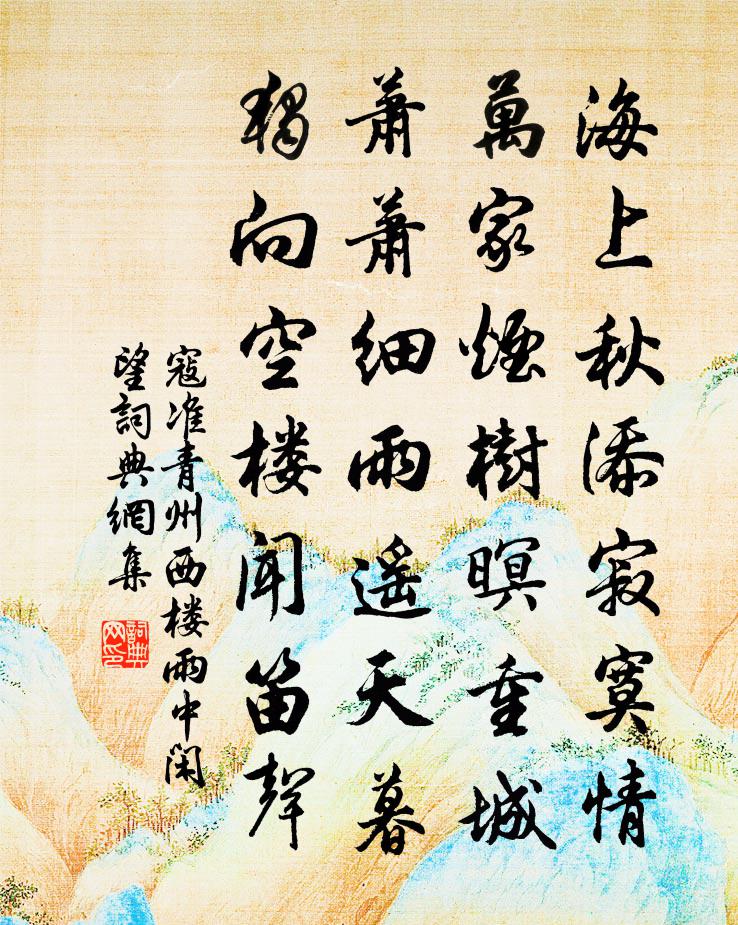 海上秋添寂寞情
萬家煙樹暝重城
蕭蕭細雨遥天暮
獨向空楼聞笛聲
寇准青州西楼雨中闲
望詞典網集
詞典
网印